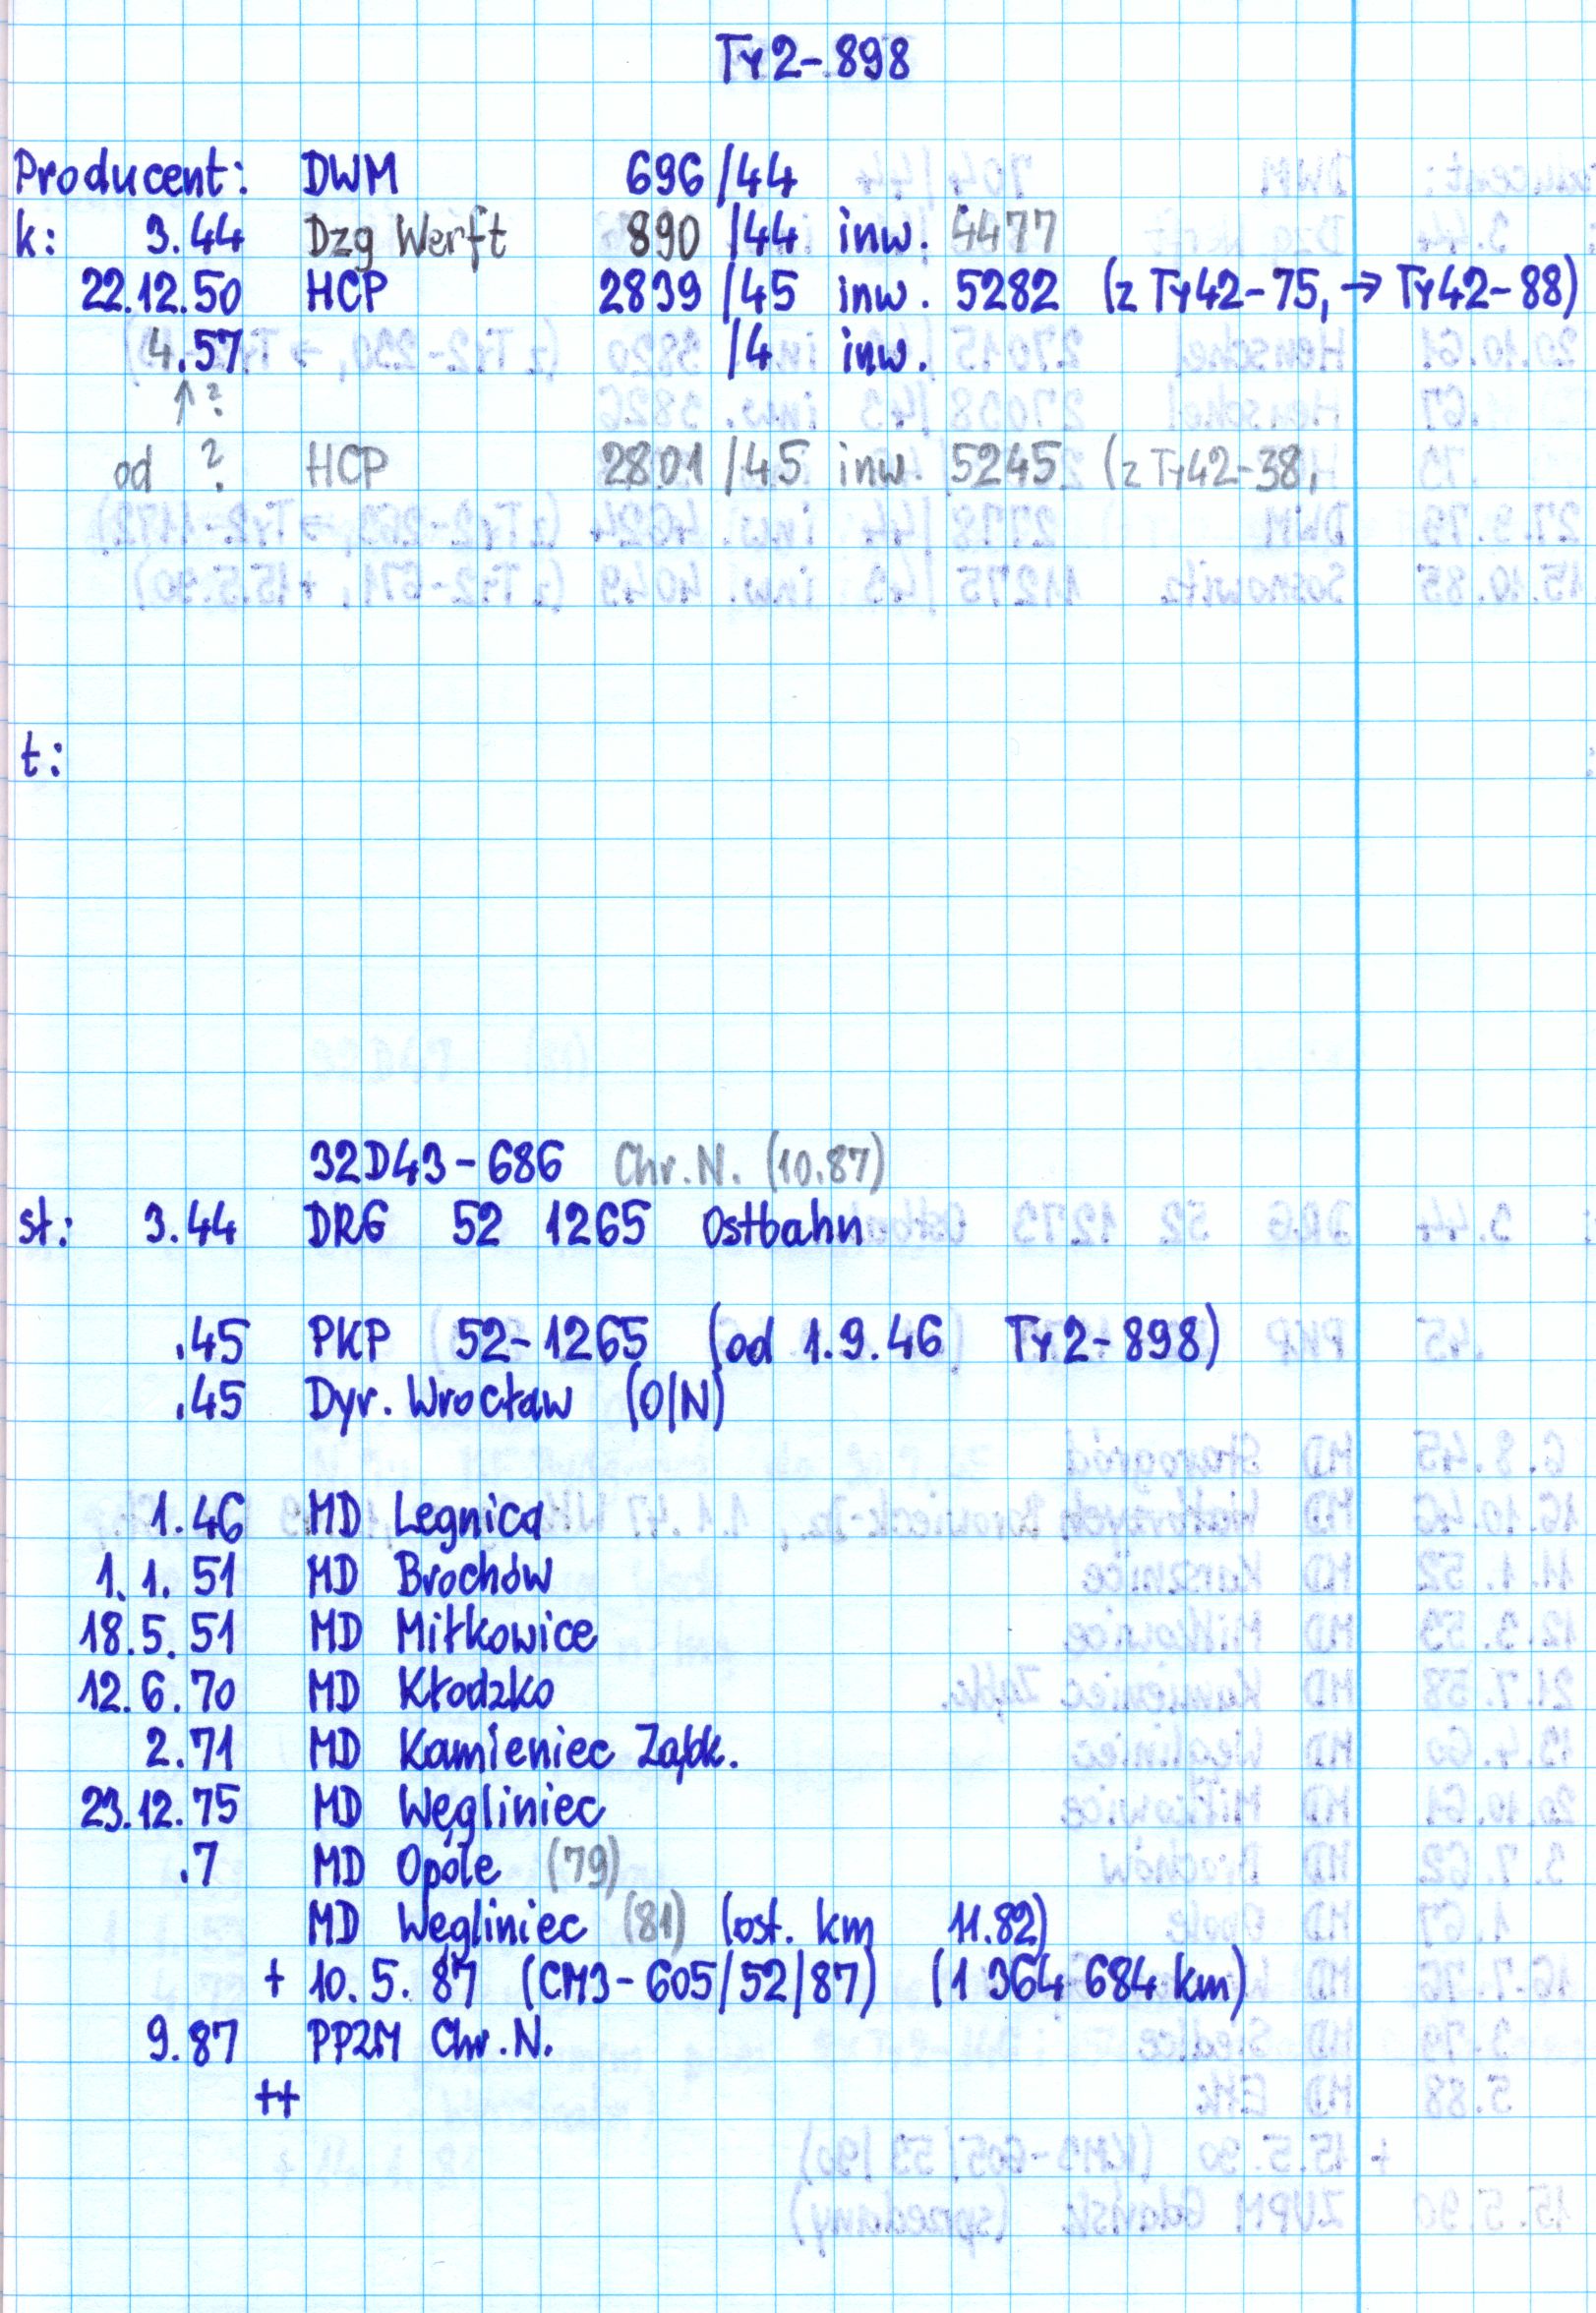 Ty2-898
Producent: DWM 696/44
k: 3.44 Dzg Werft 890/44 inw. 4477
22.12.50 HCP 2839/45 inw. 5282 (z Ty42-75, → Ty42-88)
4.57 /4 inw.
↑?
od ? HCP 2801/45 inw. 5245 (z Ty42-38,
t:
32D43-686 Chr.N. (10.87)
st: 3.44 DRG 52 1265 Ostbahn
.45 PKP 52-1265 (od 1.9.46 Ty2-898)
.45 Dyr. Wrocław (O/N)
1.46 MD Legnica
1.1.51 MD Brochów
18.5.51 MD Miłkowice
12.6.70 MD Kłodzko
2.71 MD Kamieniec Ząbk.
23.12.75 MD Węgliniec
.7 MD Opole (79)
MD Węgliniec (81) (ost. km 11.82)
+ 10.5.87 (CM3-605/52/87) (1 364 684 km)
9.87 PPZM Chr.N.
++